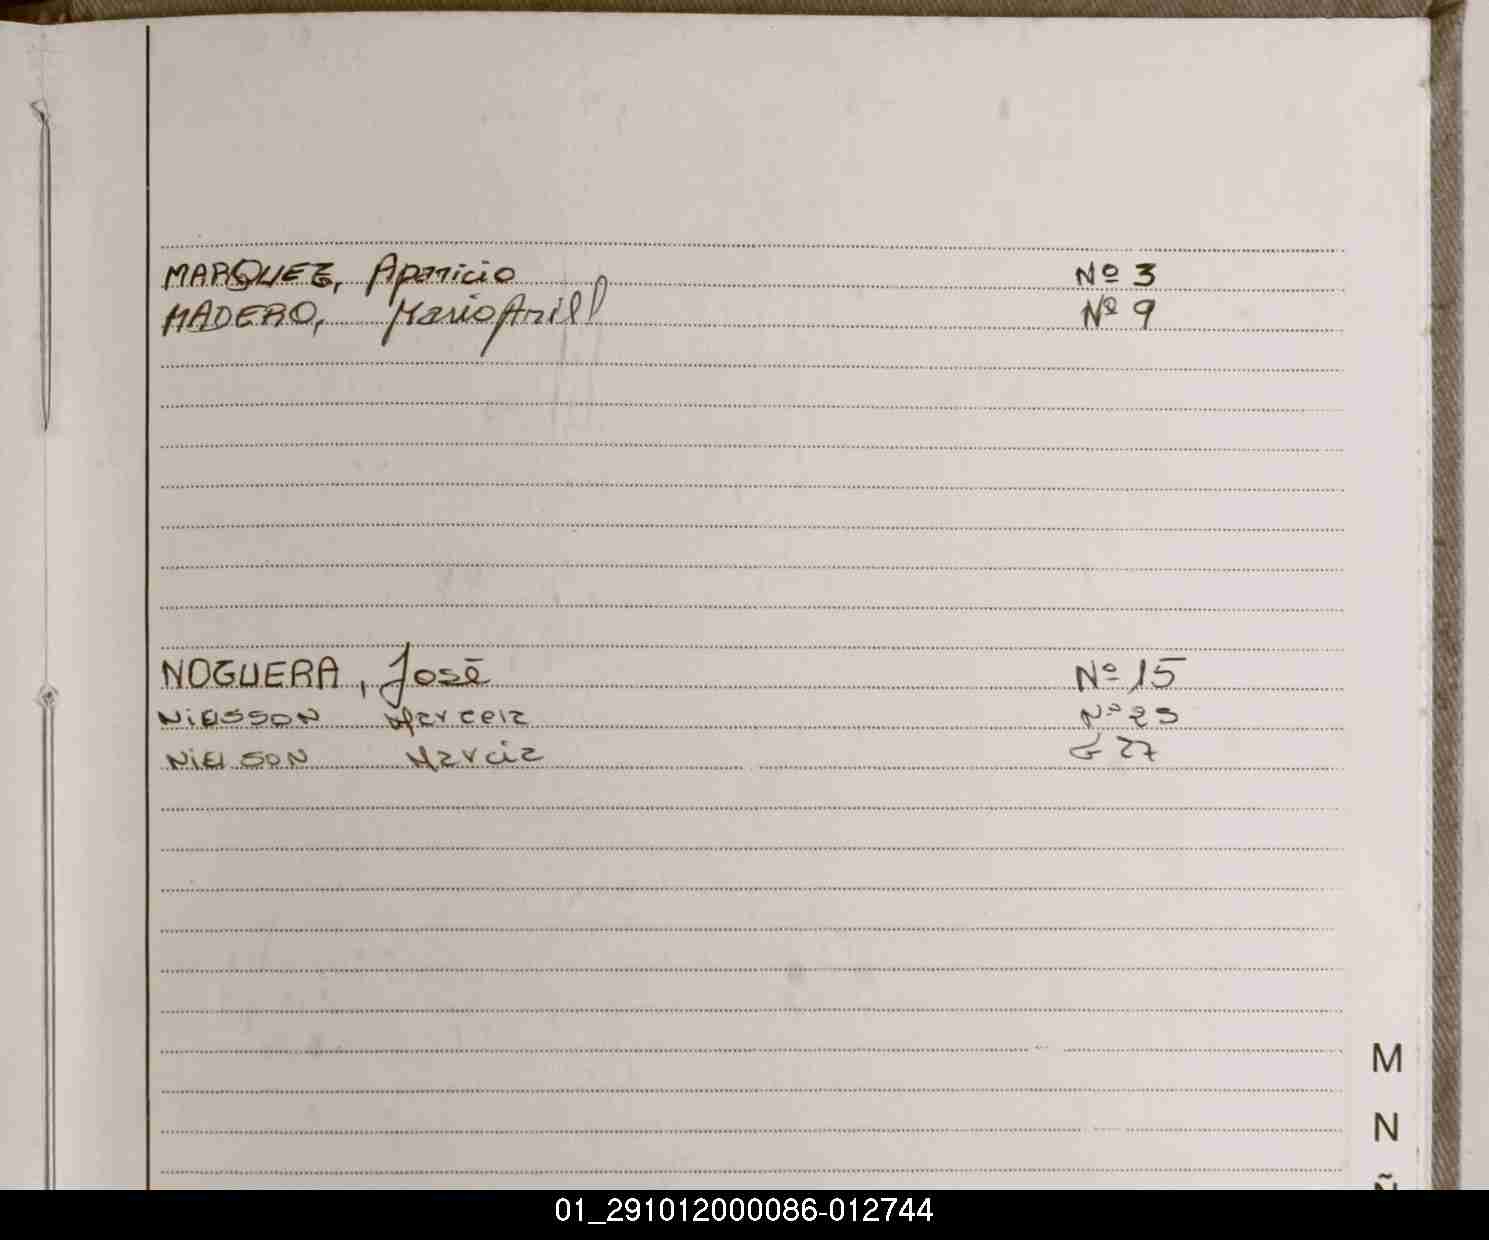 MARQUEZ, Aparicio Nº 3
MADERO, Mario Nº 9
NOGUERA, José Nº 15
NIELSSON Marcela Nº 25
NIELSON Marcia 27
M
N
Ñ
01_291012000086-012744